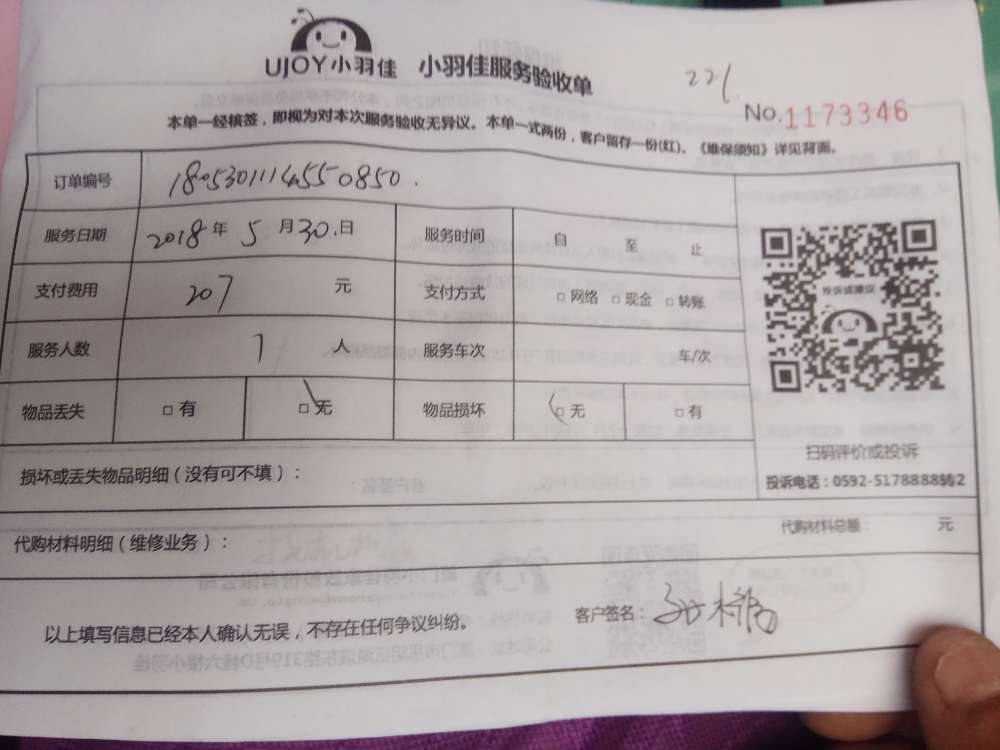 UJOY小羽佳 小羽佳服务验收单
221
No.1173346
本单一经核签，即视为对本次服务验收无异议。本单一式两份，客户留存一份(红)、《维保须知》详见背面。
订单编号 180530111455 0850
服务日期 2018年 5月30日 服务时间 自 至 止
支付费用 207 元 支付方式 □网络 □现金 □转账
投诉或建议
服务人数 1 人 服务车次 车/次
物品丢失 □有 □无 物品损坏 □无 □有
扫码评价或投诉
损坏或丢失物品明细（没有可不填）：
投诉电话：0592-5178888转2
代购材料总额： 元
代购材料明细（维修业务）：
客户签名：
以上填写信息已经本人确认无误，不存在任何争议纠纷。